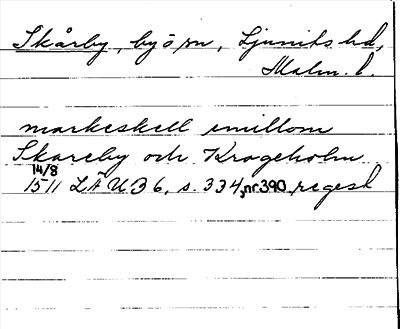 Skårby, by ö sn, Ljunits hd,
Malm. l.
markeskell emillom
Skareby och Krageholm
14/8
1511 LÄU 36, s. 334, nr. 390, regest